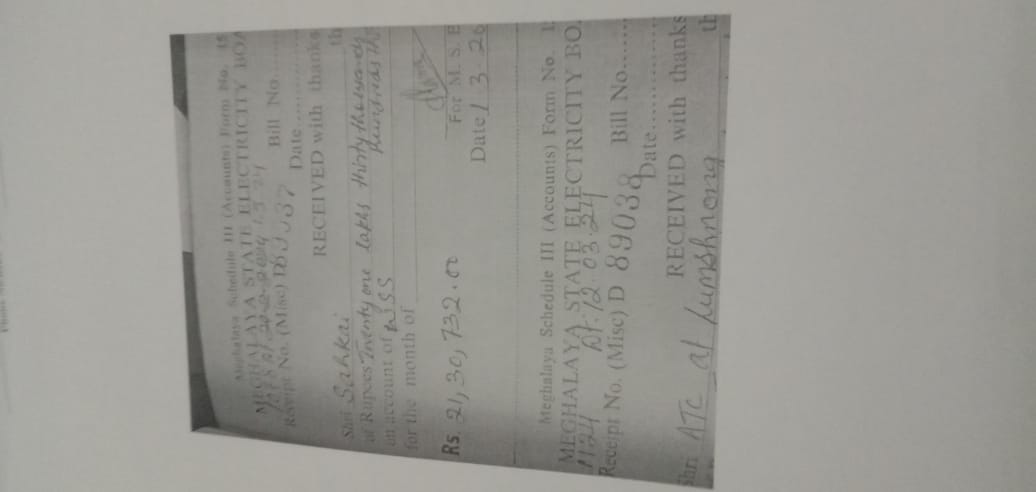 Meghalaya Schedule III (Accounts) Form No.
MEGHALAYA STATE ELECTRICITY BOA
Bill No.......
Receipt No. (Misc) D
Date............
RECEIVED with thanks
th
Shri Sahkai
of Rupees Twenty one lakhs thirty thousand
on account of
for the month of
Rs. 21,30,732.00
For M. S. E
Date 1 3 20
Meghalaya Schedule III (Accounts) Form No. 1
MEGHALAYA STATE ELECTRICITY BO
1124 Dt. 12.03.24
Receipt No. (Misc) D 89038 Bill No......
Date............
RECEIVED with thanks
Shri ATC at Lumshnong th